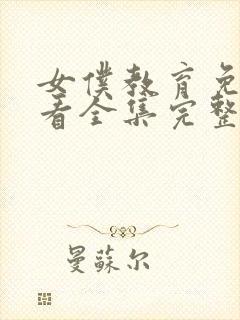 女僕教育免
看全集完整
曼蘇尔